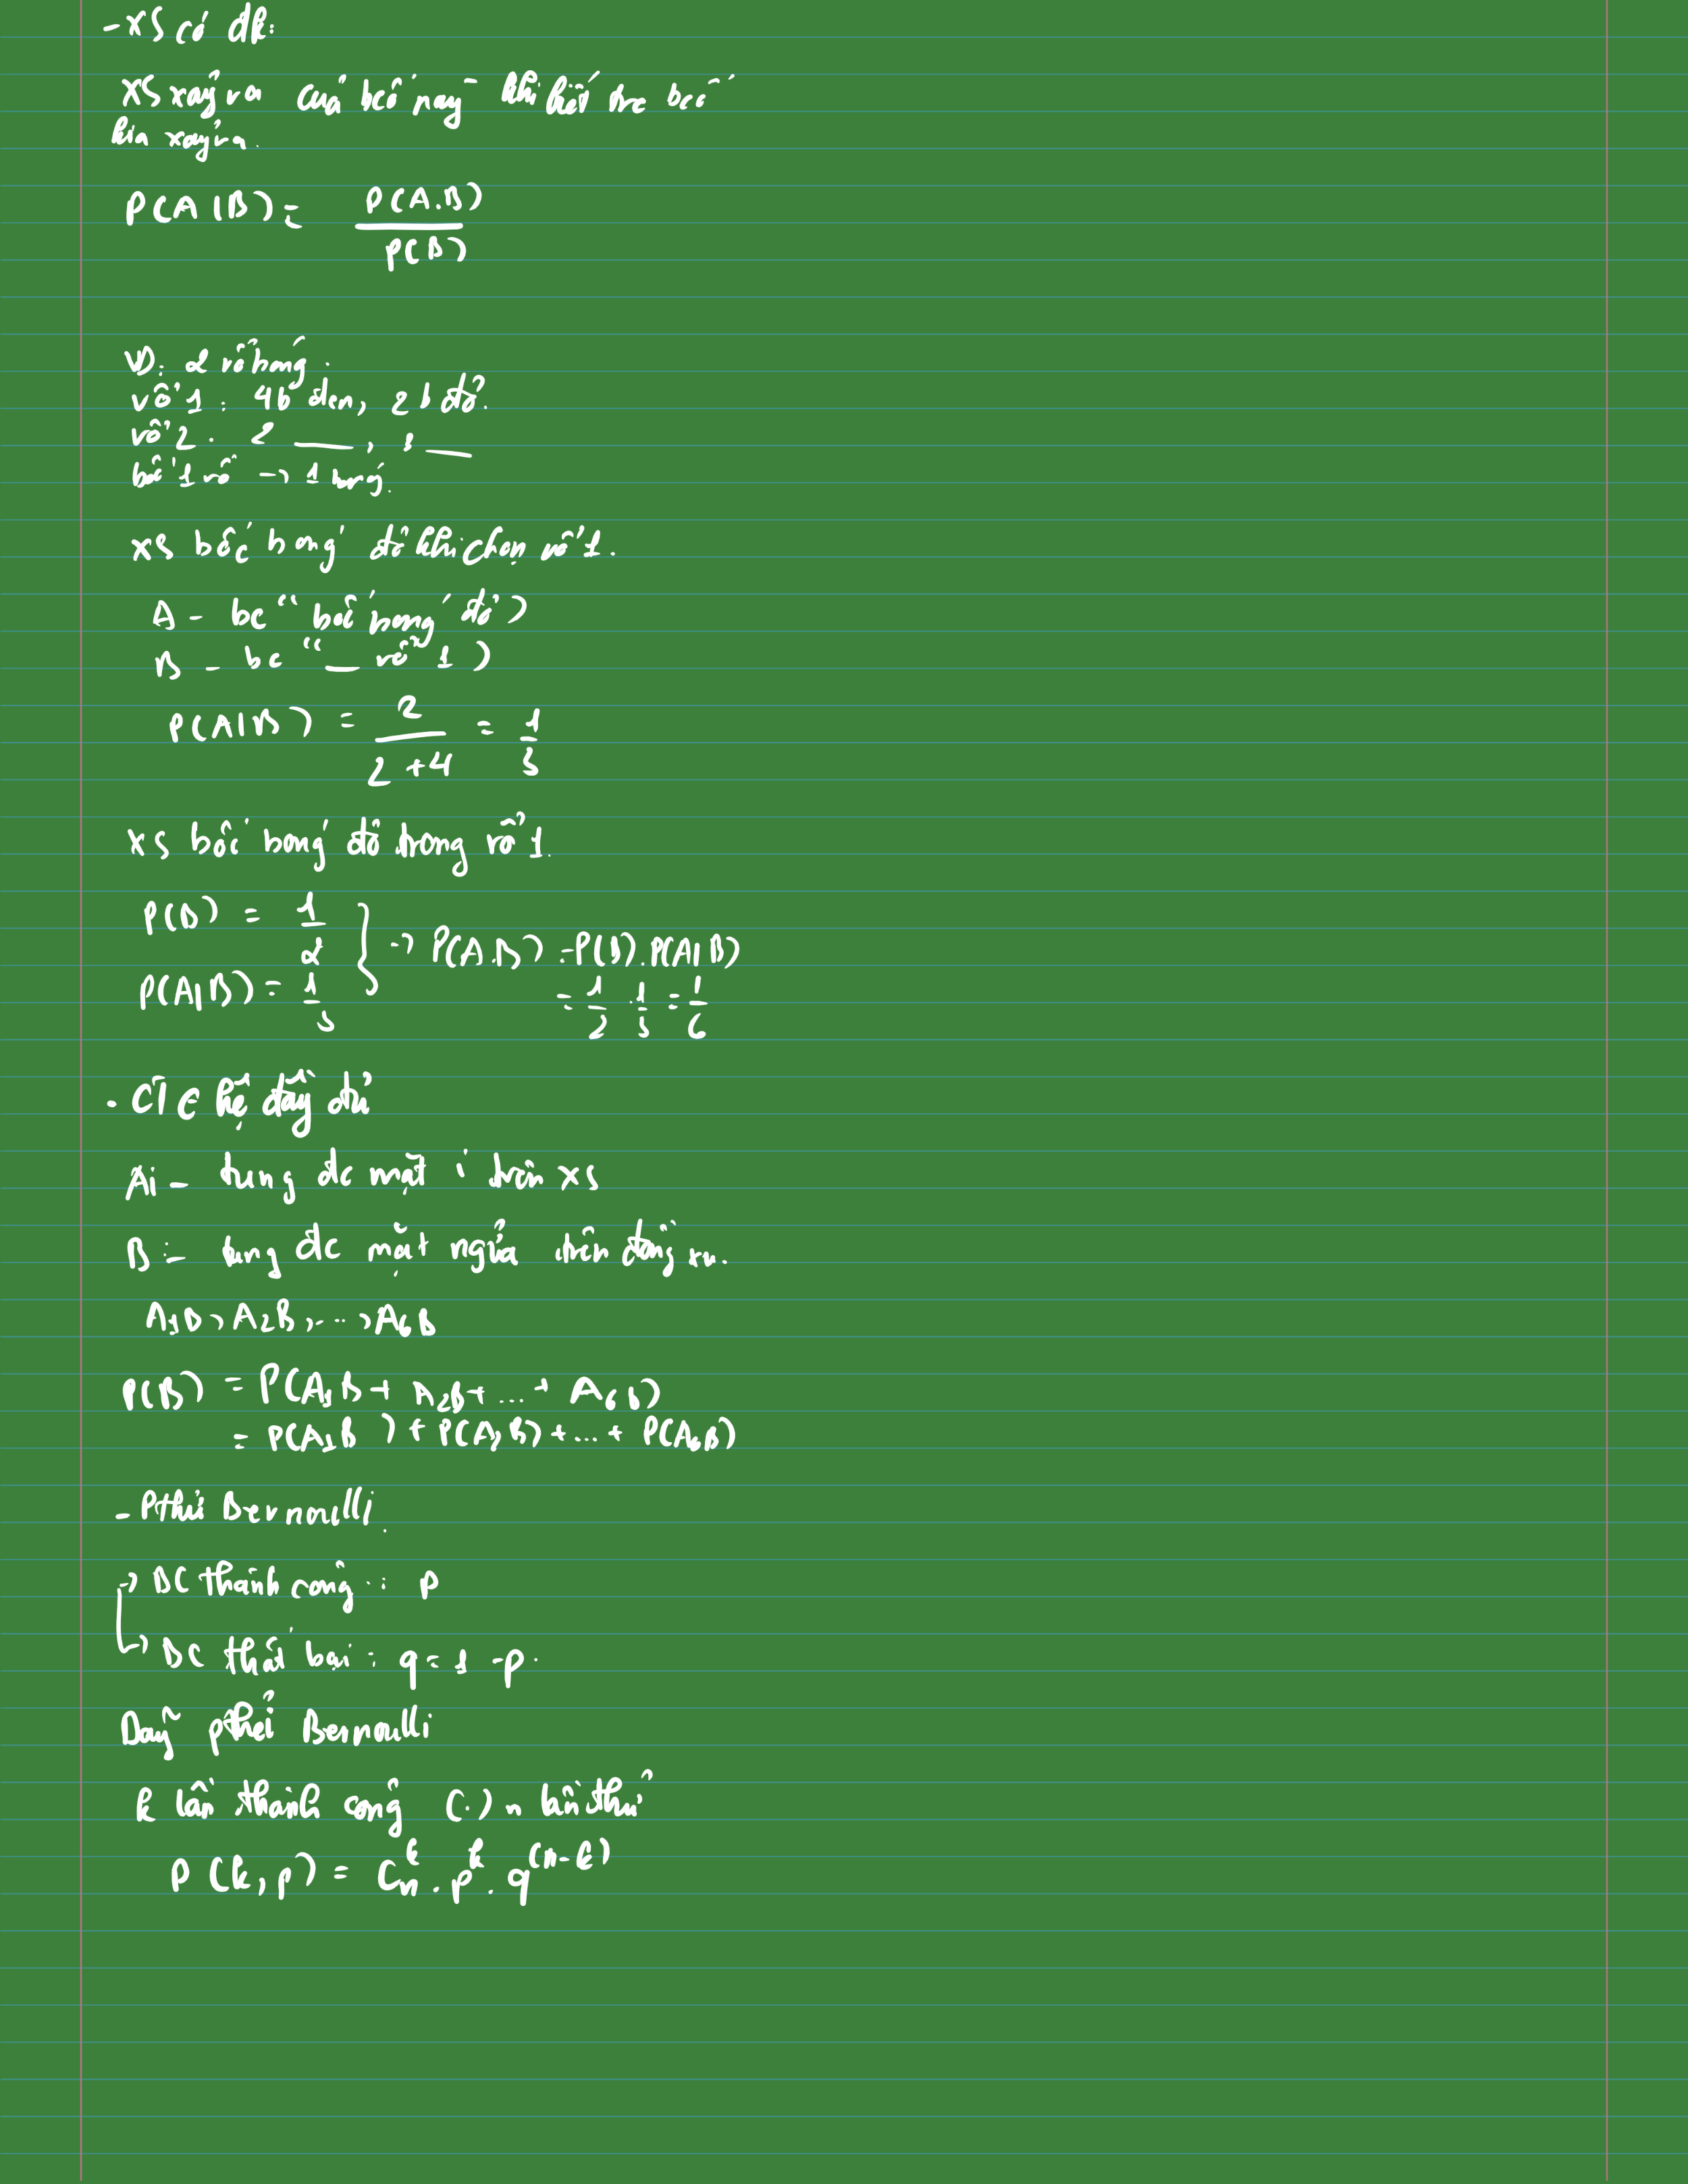 - XS có đk:
XS xảy ra của bcố này khi biết trc bcố
kia xảy ra.
P(A|B) = P(A.B) / P(B)
VD: 2 rổ bóng.
rổ 1: 4b đen, 2b đỏ.
rổ 2: 2 ___, 3 ___
bốc 1 rổ → 1 bóng.
XS bốc bóng đỏ khi chọn rổ 1.
A - bc "bốc bóng đỏ"
B - bc "___ rổ 1"
P(A|B) = 2 / (2+4) = 1/3
XS bốc bóng đỏ trong rổ 1.
P(B) = 1/2
P(A|B) = 1/3 } → P(A.B) = P(B).P(A|B)
= 1/2 . 1/3 = 1/6
- CT hệ đầy đủ
Ai - tung đc mặt i trên xs
B: - tung đc mặt ngửa trên đồng xu.
A1B, A2B, ..., A6B
P(B) = P(A1B + A2B + ... + A6B)
= P(A1B) + P(A2B) + ... + P(A6B)
- Pthử Bernoulli.
→ BC thành công: p
→ BC thất bại: q = 1 - p.
Dãy phthử Bernoulli
k lần thành công (.) n lần thử
P(k,p) = C_n^k . p^k . q^(n-k)